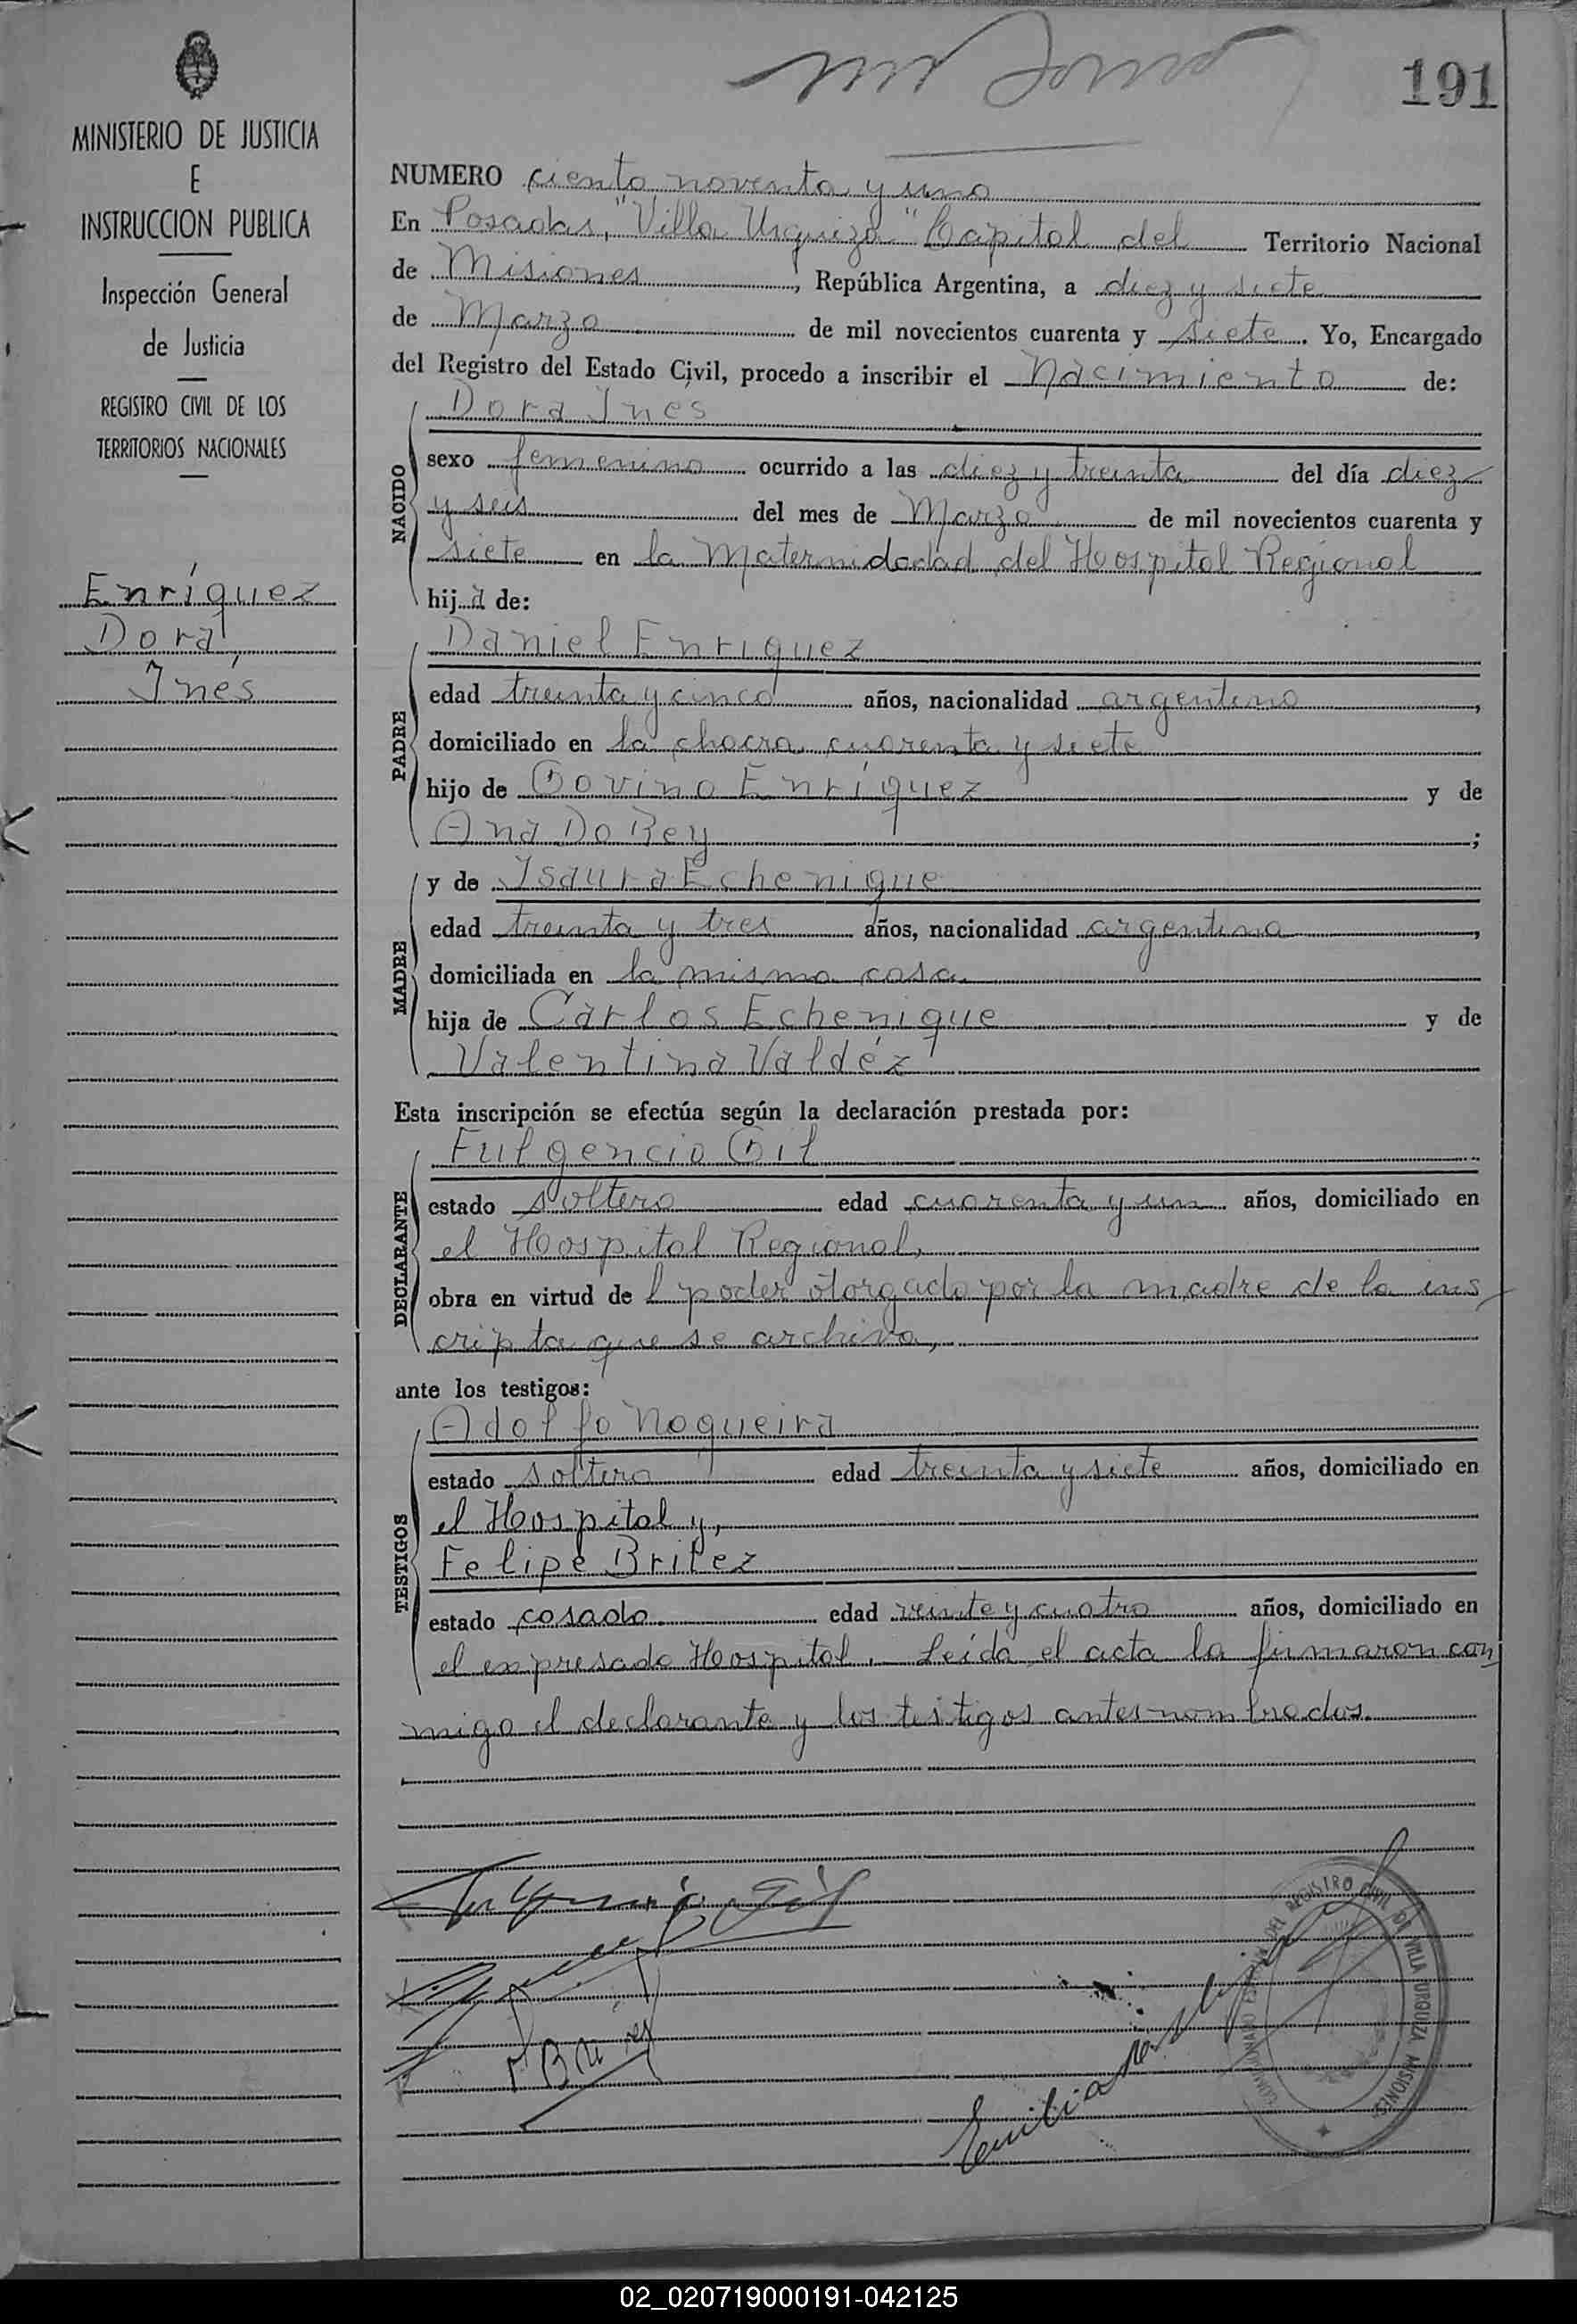 191
MINISTERIO DE JUSTICIA
E
INSTRUCCION PUBLICA
Inspección General
de Justicia
REGISTRO CIVIL DE LOS
TERRITORIOS NACIONALES
Enríquez
Dora
Inés
NUMERO ciento noventa y uno
En Posadas, "Villa Urquiza" Capital del Territorio Nacional
de Misiones, República Argentina, a diez y siete
de Marzo de mil novecientos cuarenta y siete. Yo, Encargado
del Registro del Estado Civil, procedo a inscribir el Nacimiento de:
NACIDO
Dora Ines
sexo femenino ocurrido a las diez y treinta del día diez
y seis del mes de Marzo de mil novecientos cuarenta y
siete en la Maternidadad del Hospital Regional
hija de:
PADRE
Daniel Enriquez
edad treinta y cinco años, nacionalidad argentino,
domiciliado en la chacra cuarenta y siete
hijo de Govino Enríquez y de
Ana Do Rey;
MADRE
y de Isaura Echenique
edad treinta y tres años, nacionalidad argentina,
domiciliada en la misma casa
hija de Carlos Echenique y de
Valentina Valdéz
Esta inscripción se efectúa según la declaración prestada por:
DECLARANTE
Fulgencio Gil
estado soltero edad cuarenta y un años, domiciliado en
el Hospital Regional,
obra en virtud de l poder otorgado por la madre de la ins
cripta que se archiva,
ante los testigos:
TESTIGOS
Adolfo Nogueira
estado soltero edad treinta y siete años, domiciliado en
el Hospital y,
Felipe Britez
estado casado edad veinte y cuatro años, domiciliado en
el expresado Hospital. Leída el acta la firmaron con
migo el declarante y los testigos antes nombrados.
REGISTRO CIVIL DE VILLA URQUIZA MISIONES
02_020719000191-042125